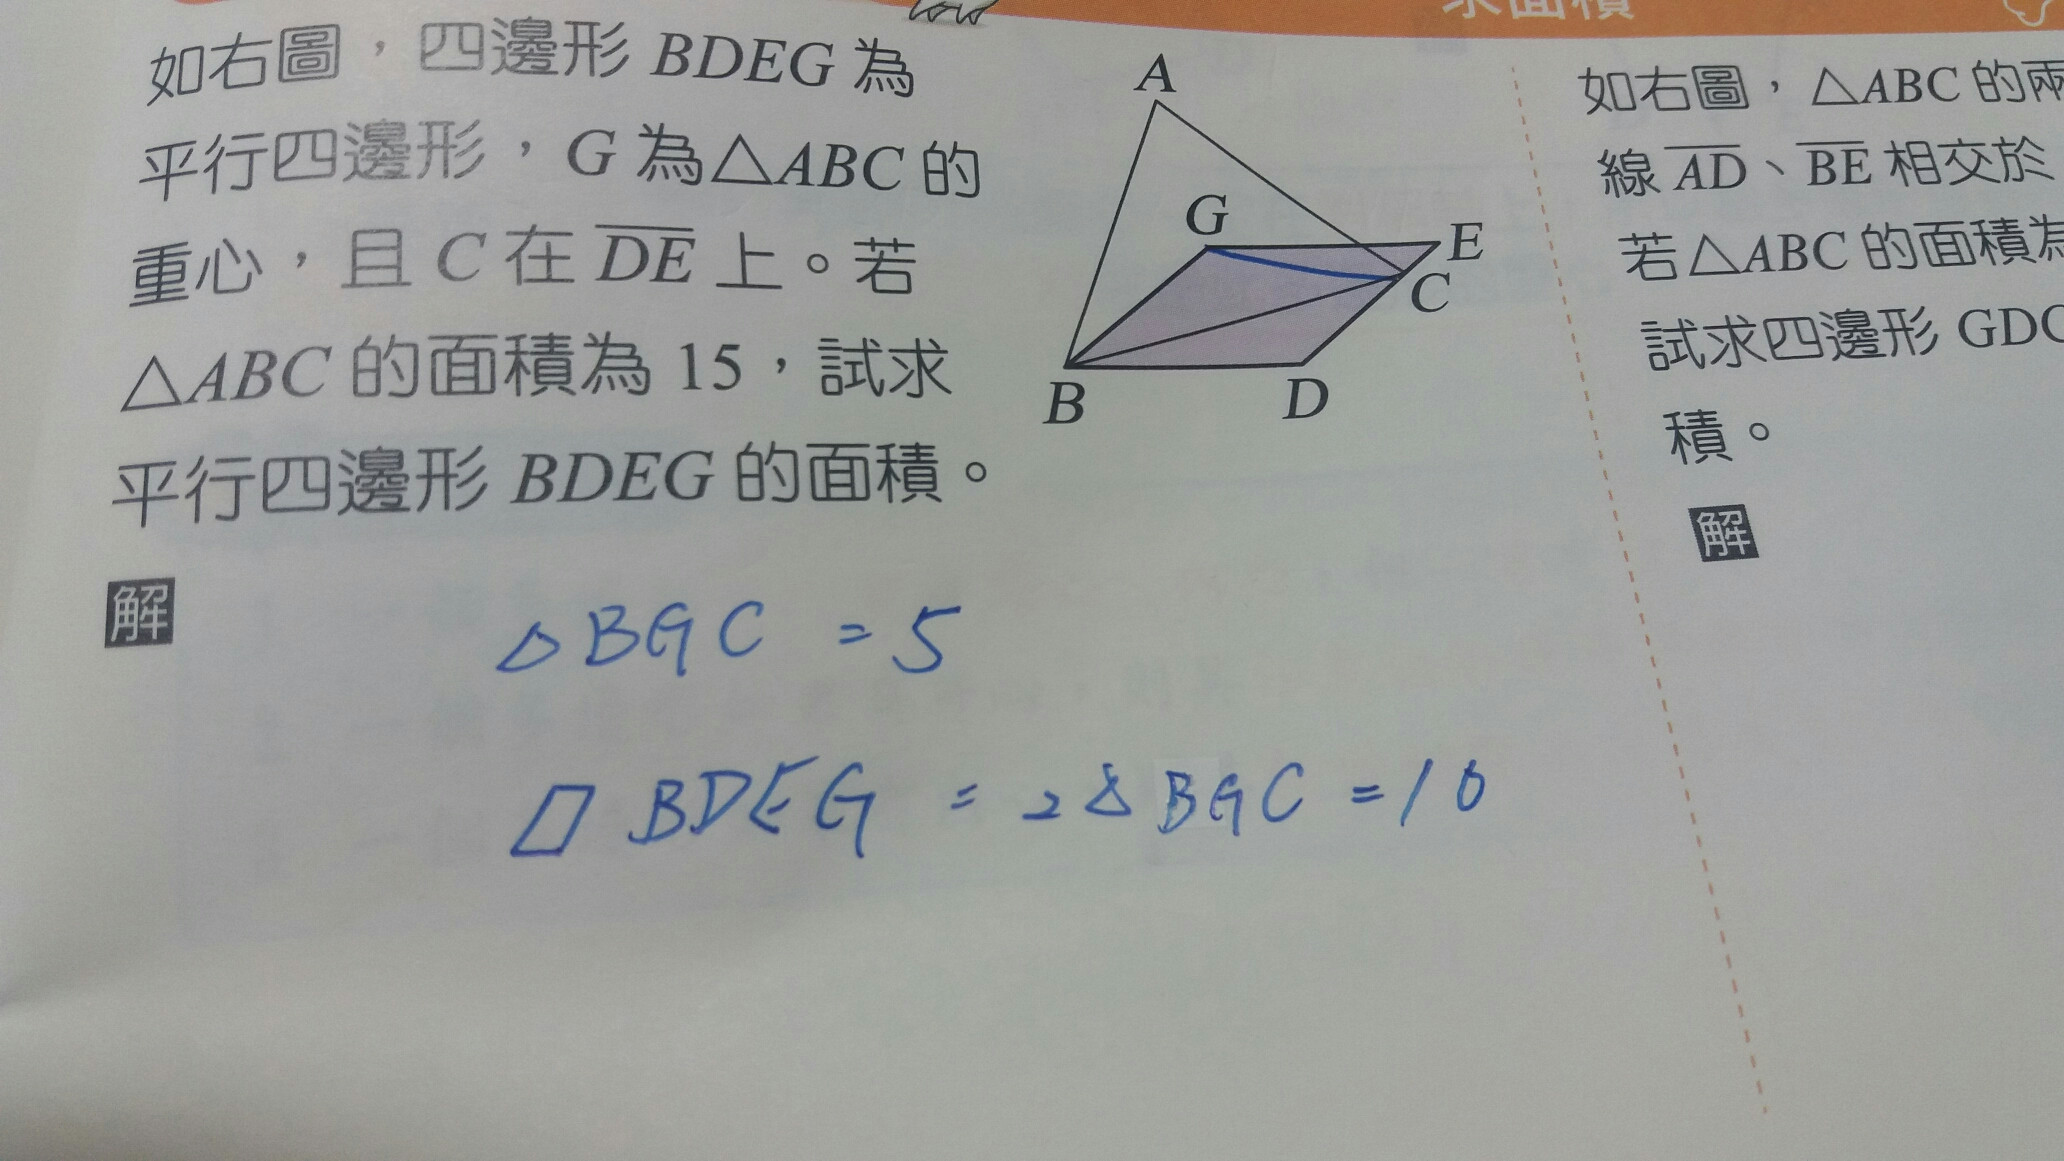 求面積
如右圖，四邊形 BDEG 為
平行四邊形，G 為△ABC 的
重心，且 C 在 DE 上。若
△ABC 的面積為 15，試求
平行四邊形 BDEG 的面積。
A
G
E
C
B
D
解
△BGC = 5
▱BDEG = 2△BGC = 10
如右圖，△ABC 的兩
線 AD、BE 相交於
若△ABC 的面積為
試求四邊形 GDC
積。
解